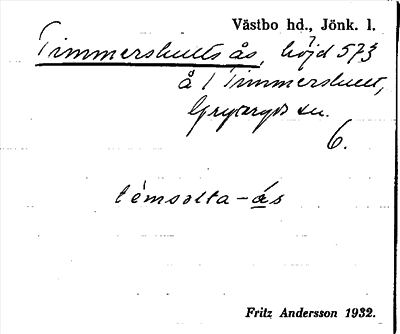 Västbo hd., Jönk. l.
Timmershults ås, höjd 573
å 1 Timmershult,
Gryteryds sn.
6.
témsolta-ås
Fritz Andersson 1932.